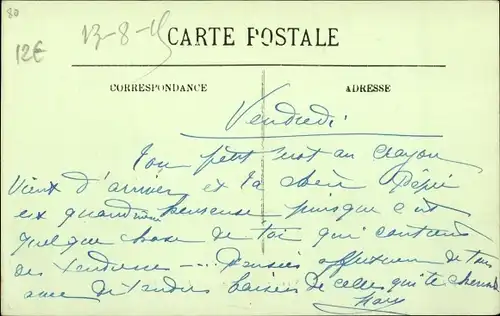 80
12€
13-8-15
CARTE POSTALE
CORRESPONDANCE
ADRESSE
Vendredi
Ton petit mot au crayon
vient d'arriver et ta chère
est quand même heureuse puisque c'est
quelque chose de toi qui contient
des tendresses --- Pensées affectueuses de tous
avec de tendres baisers de celle qui te